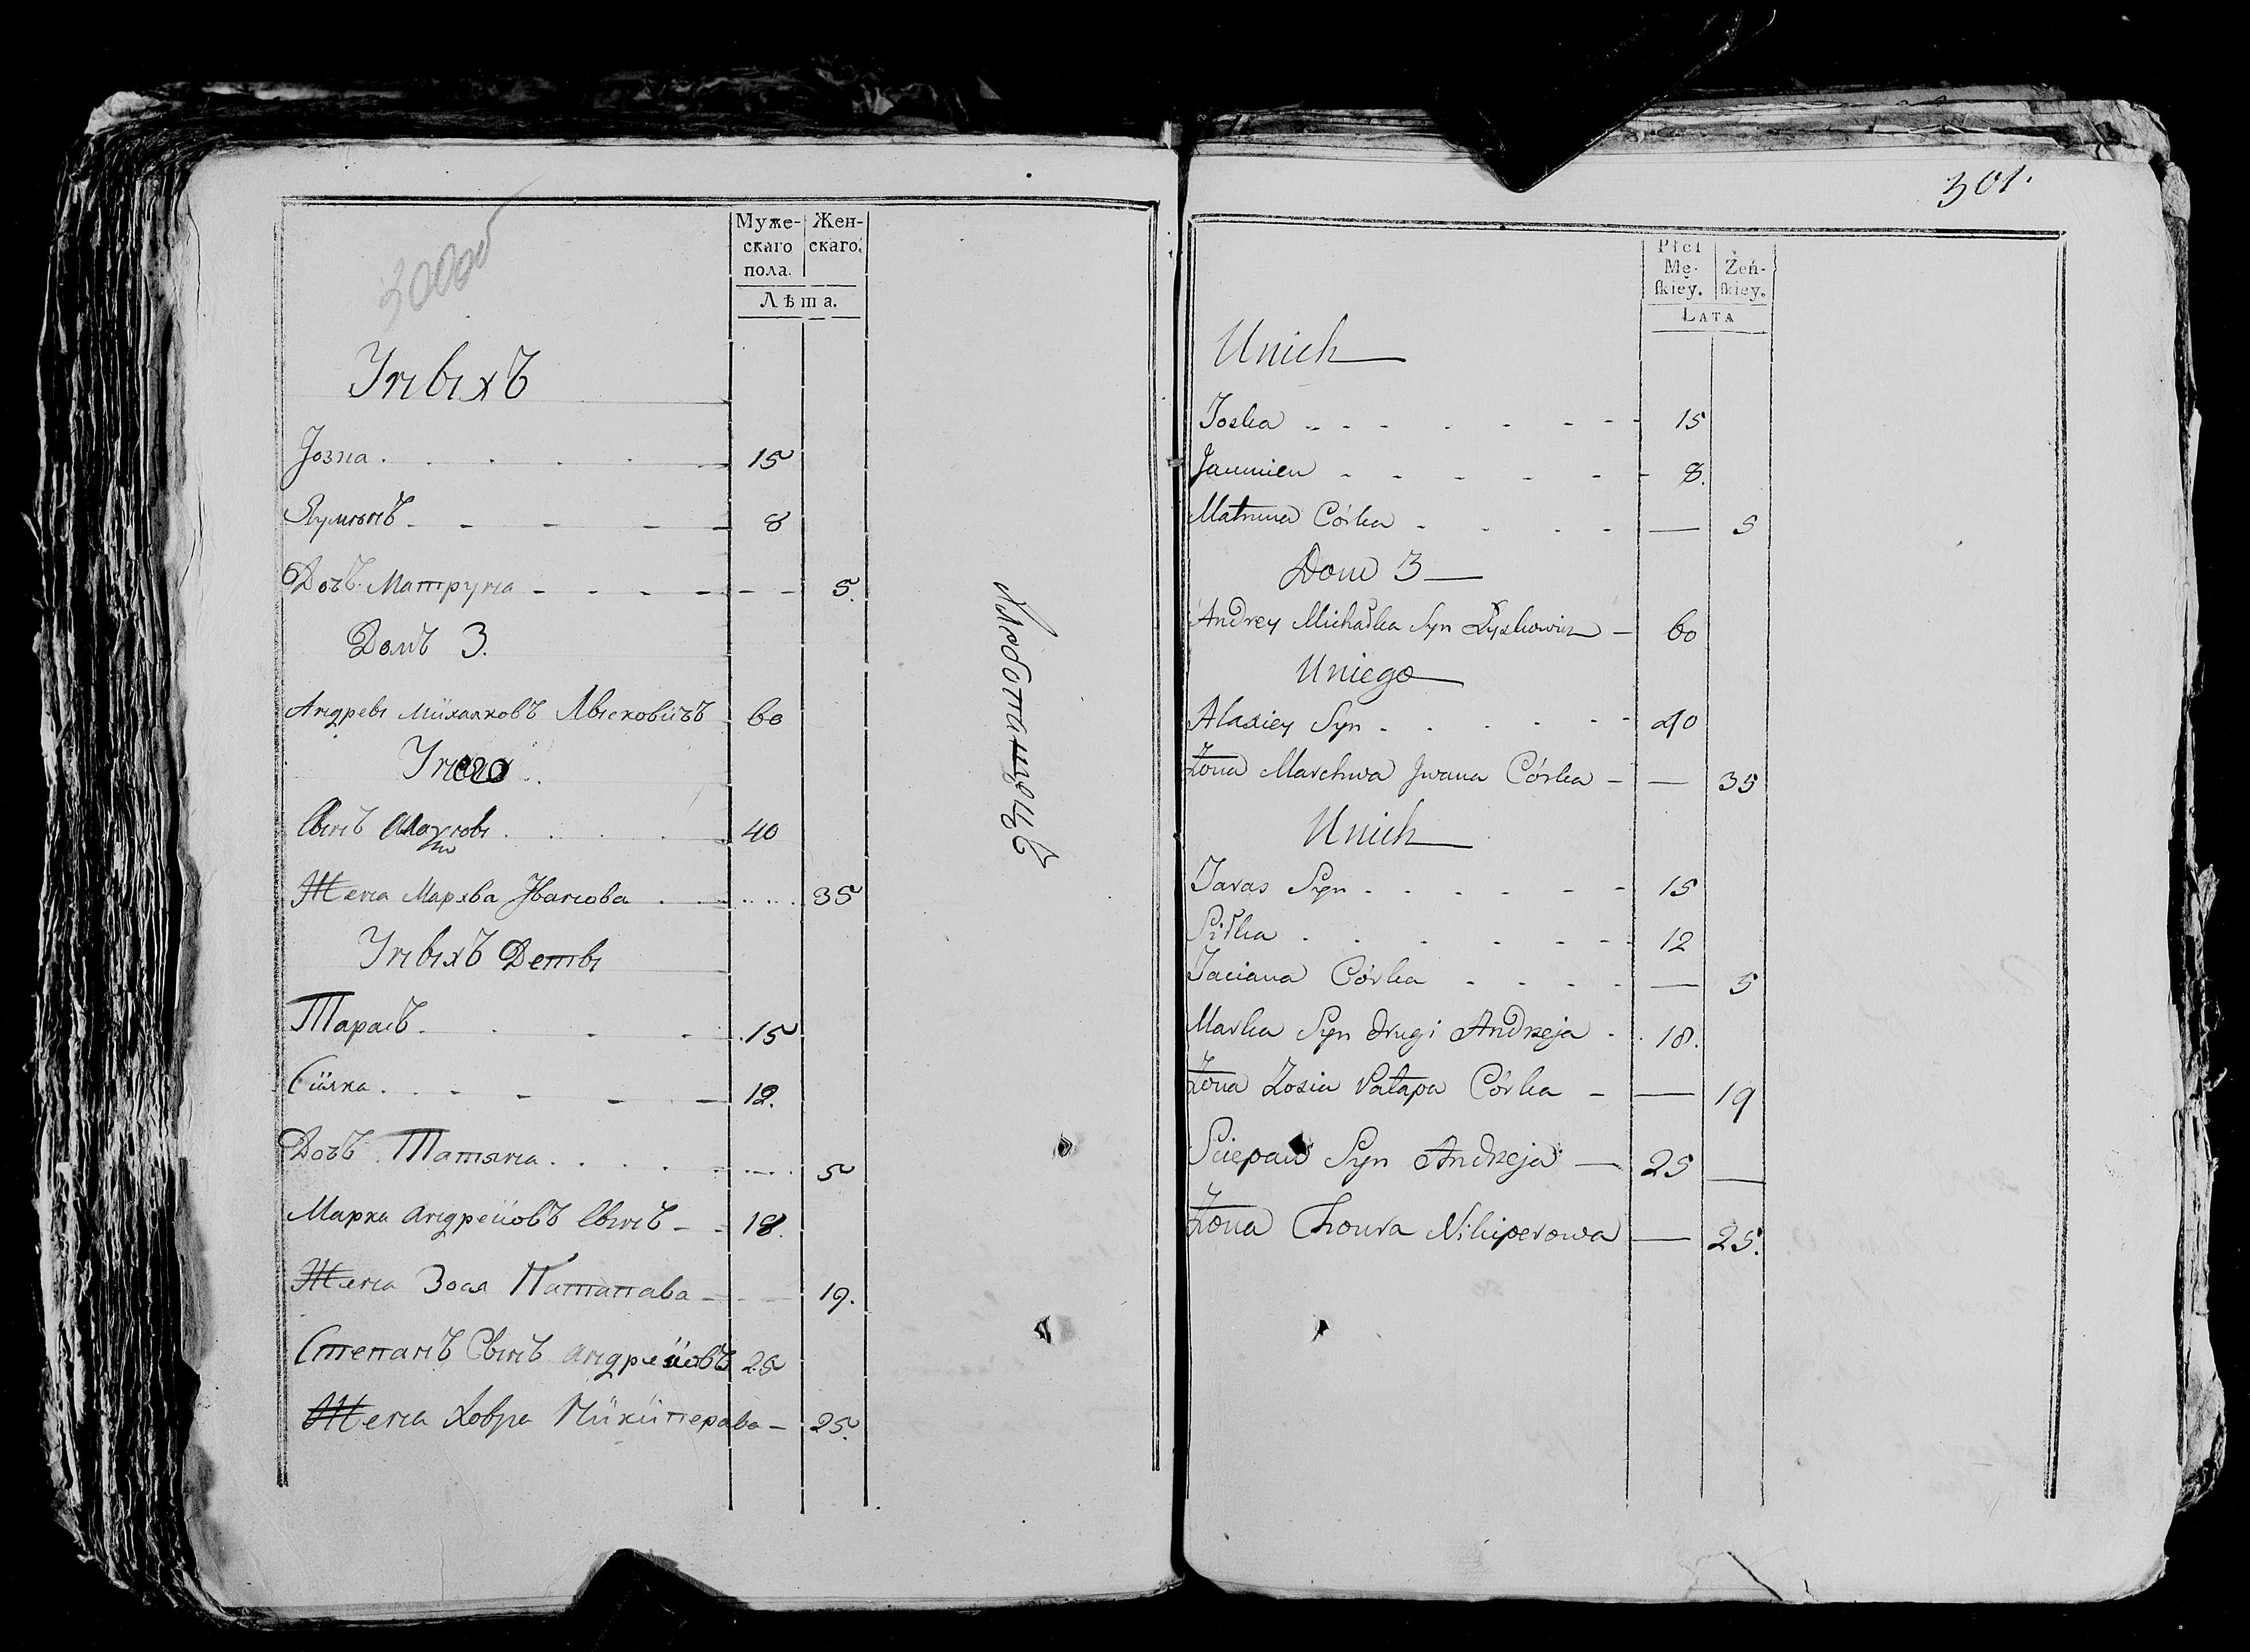 300об
Муже-
скаго
пола.
Жен-
скаго.
Лѣта.
Унвıхъ
Јозка 15
Яумѣнъ 8
Дочъ Матруна 5.
Домъ 3.
Андреві Михалковъ Лвісковичъ 60
Унего
Свінъ 40
Жена Мархва Іванова 35
Унвıхъ Детві
Тарасъ 15
Сцяпка 12.
Дочъ Татяна 5
Марка андреёовъ Свінъ 18.
Жена Зося Патапава 19.
Степанъ Свінъ андреёовъ 25
Жена Ховра Никиперава 25.
301.
Płci
Mę-
ſkiey.
Żeń-
ſkiey.
LATA
Unich
Joska 15
Jaumien 8.
Matruna Córka 5
Dom 3
Andrey Michałka Syn Łyskowicz 60
Uniego
Alaxiey Syn 40
Żona Marchwa Jwana Córka 35
Unich
Taras Syn 15
Siłka 12
Taciana Córka 5
Marka Syn drugi Andrzeja 18.
Żona Zosia Patapa Córka 19
Sciepan Syn Andrzeja 25
Żona Chowra Nikiperowa 25.